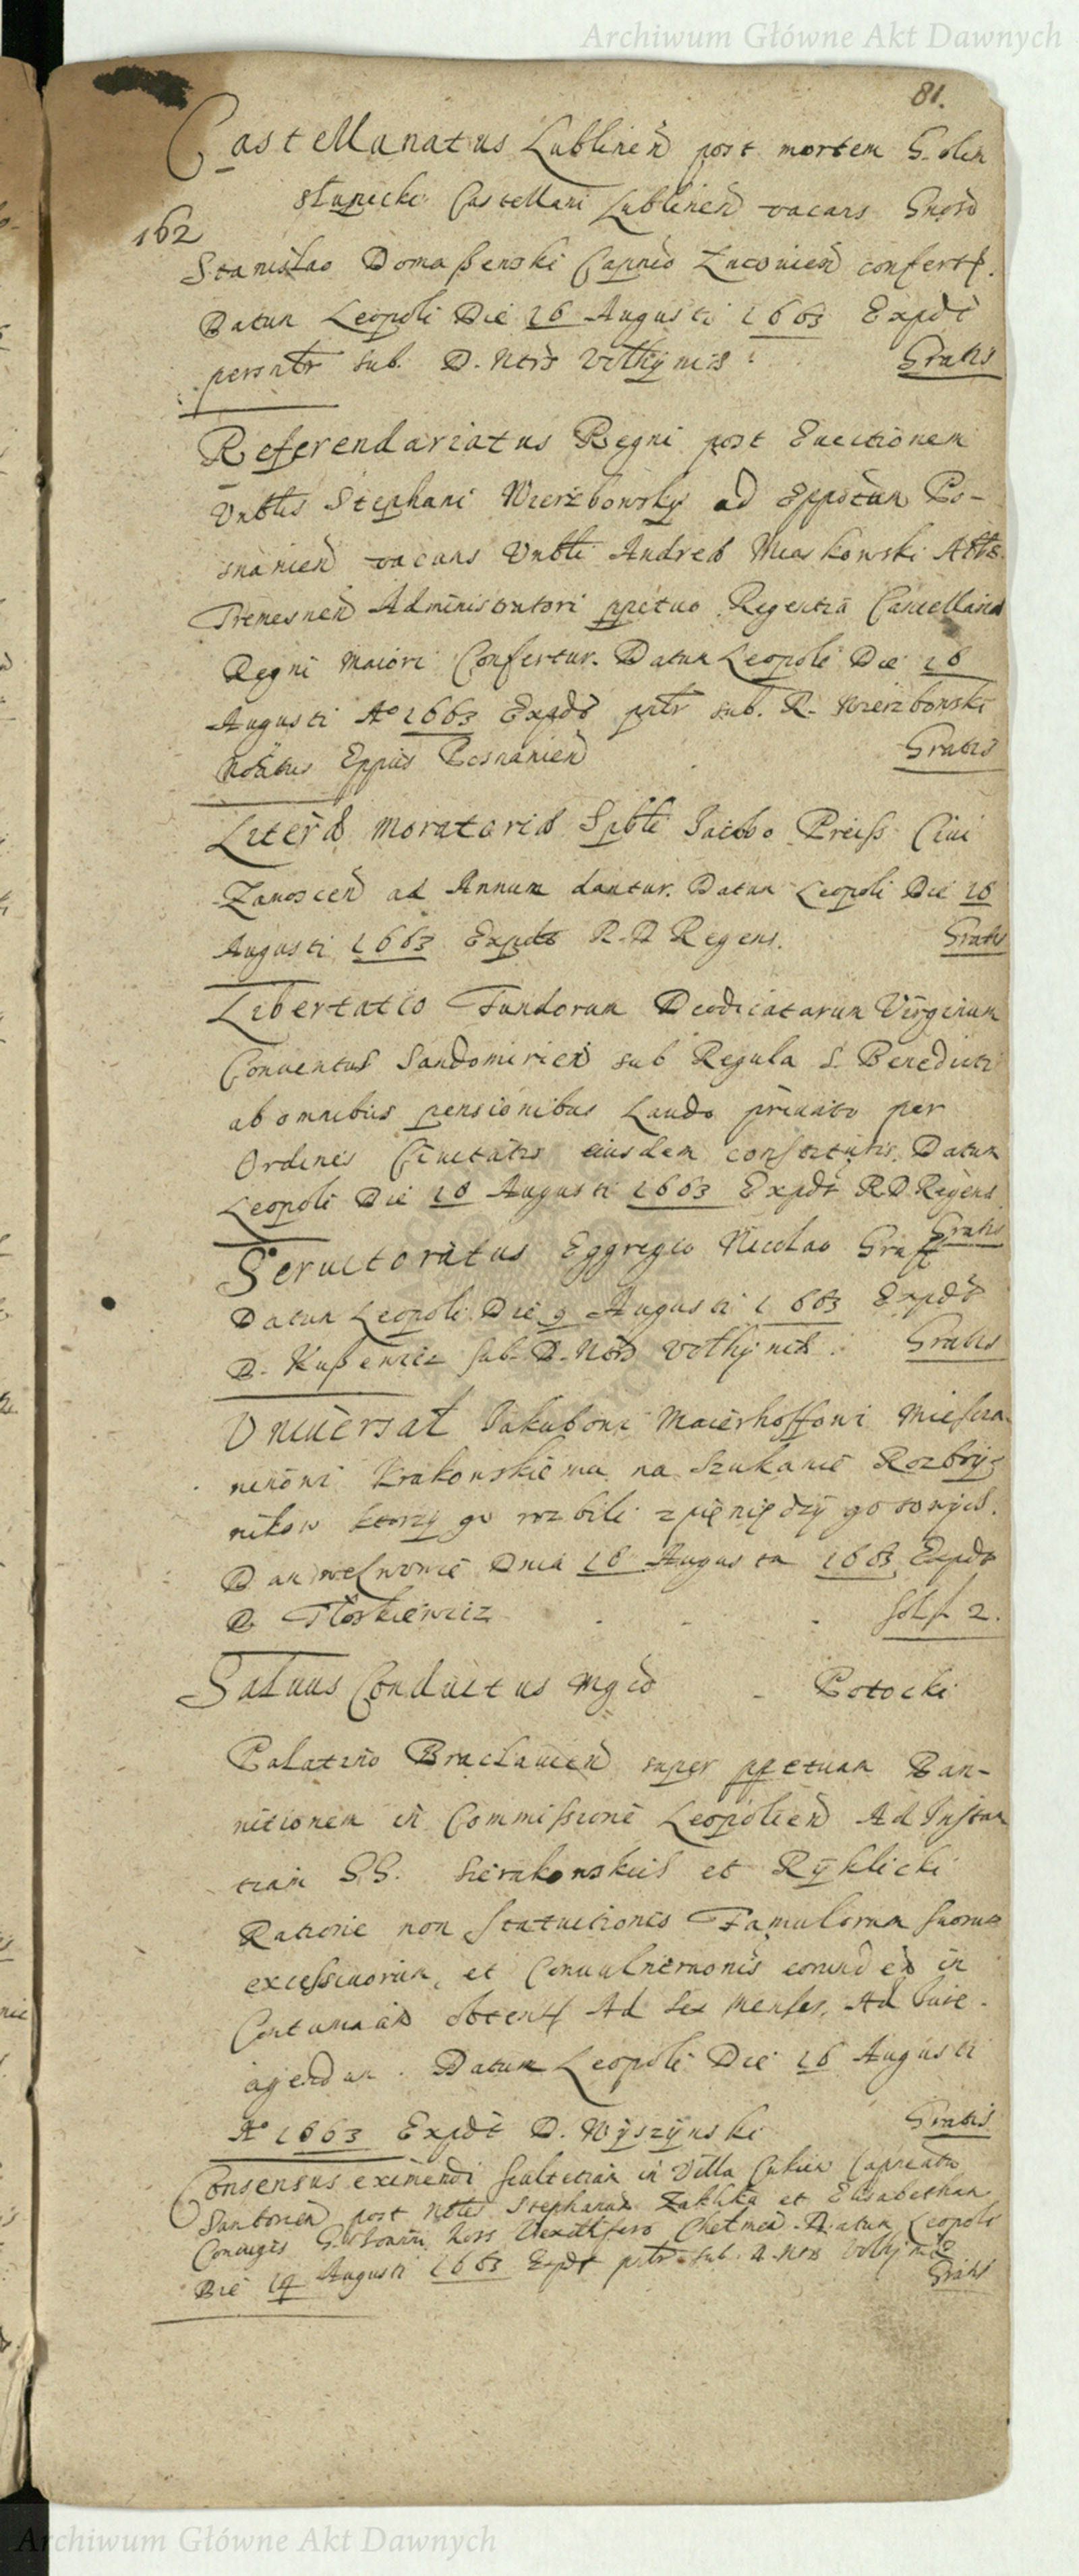 Archiwum Główne Akt Dawnych
81.
Castellanatus Lublineñ post mortem G. olim
Słupecki Castellani Lublineñ vacans Gnoso
162
Stanislao Domaszewski Capneo Lucovieñ confertr.
Datum Leopoli Die 16 Augusti 1663 Expdt
persntr sub. D. Ntris Volhÿniæ: Gratis
Referendariatus Regni post Euectionem
Vnbtis Stephani Wierzbowsky ad Eppatum Po-
snanieñ vacans Vnbli Andreæ Miaskowski Abb
Tremesneñ Administratori ppetuo Regenti Cancellariæ
Regni Maiori Confertur. Datum Leopoli Die 16
Augusti Aº 1663 Expdt pntr sub. R. Wierzbowski
Noãtus Eppus Posnanieñ Gratis
Literæ Moratoriæ Spbli Jacobo Preiss Ciui
Zamosceñ ad Annum dantur. Datum Leopoli Die 16
Augusti 1663 Expdt R. D Regens. Gratis
Libertatio Fundorum Deodicatarum Virginum
Conuentus Sandomirieñ sub Regula S. Benedicti
ab omnibus pensionibus Laudo priuato per
Ordines Ciuitatis eiusdem constitutis. Datum
Leopoli Die 18 Augusti 1663 Expdt R. D. Regens
Gratis
Seruitoratus Eggregio Nicolao Graff
Datum Leopoli Die 9 Augusti 1663 Expdt
D. Kuszewicz sub. D. Ntris Volhÿniæ. Gratis
Vniuersał Jakubowi Maierhoffowi Miescza-
ninowi Krakowskiemu na Szukanie Rozboÿ-
nikow ktorzÿ go rozbili z pieniędzÿ gotowÿch.
Dan we Lwowie Dnia 16 Augusta 1663 Expdt
D. Tłoskiewicz . . . sols 2.
Saluus Conductus Mgco - Potocki
Palatino Braclauieñ super ppetuam Ban-
nitionem in Commissione Leopolieñ Ad Instan
tiam G.G. Sierakowskiis et Rÿklicki
Ratione non Statuitionis Famulorum suorum
excessiuorum, et Conuulnerationis eorundem in
Contumaciam obtentr Ad Sex Menses, Ad Jure.
agendum. Datum Leopoli Die 16 Augusti
Aº 1663 Expdt D. Wÿszÿnski Gratis
Consensus eximendi scultetiam in Villa Capneatu
Samborieñ post Nbles Stephanum et Elisabetham
Coniuges Vexillifero Chelmeñ. Datum Leopoli
Die 14 Augusti 1663 Expdt pntr. sub. D. Ntris Volhÿniæ
Gratis
Archiwum Główne Akt Dawnych